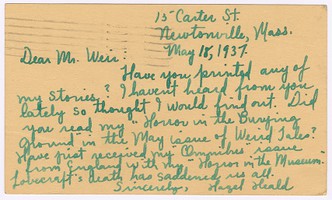 15 Carter St.
Newtonville, Mass.
May 18, 1937.
Dear Mr. Weir:
Have you printed any of
my stories? I haven't heard from you
lately so thought I would find out. Did
you read my "Horror in the Burying
Ground" in the May issue of Weird Tales?
Have just received my "Omnibus" issue
from England with my "Horror in the Museum".
Lovecraft's death has saddened us all.
Sincerely, Hazel Heald